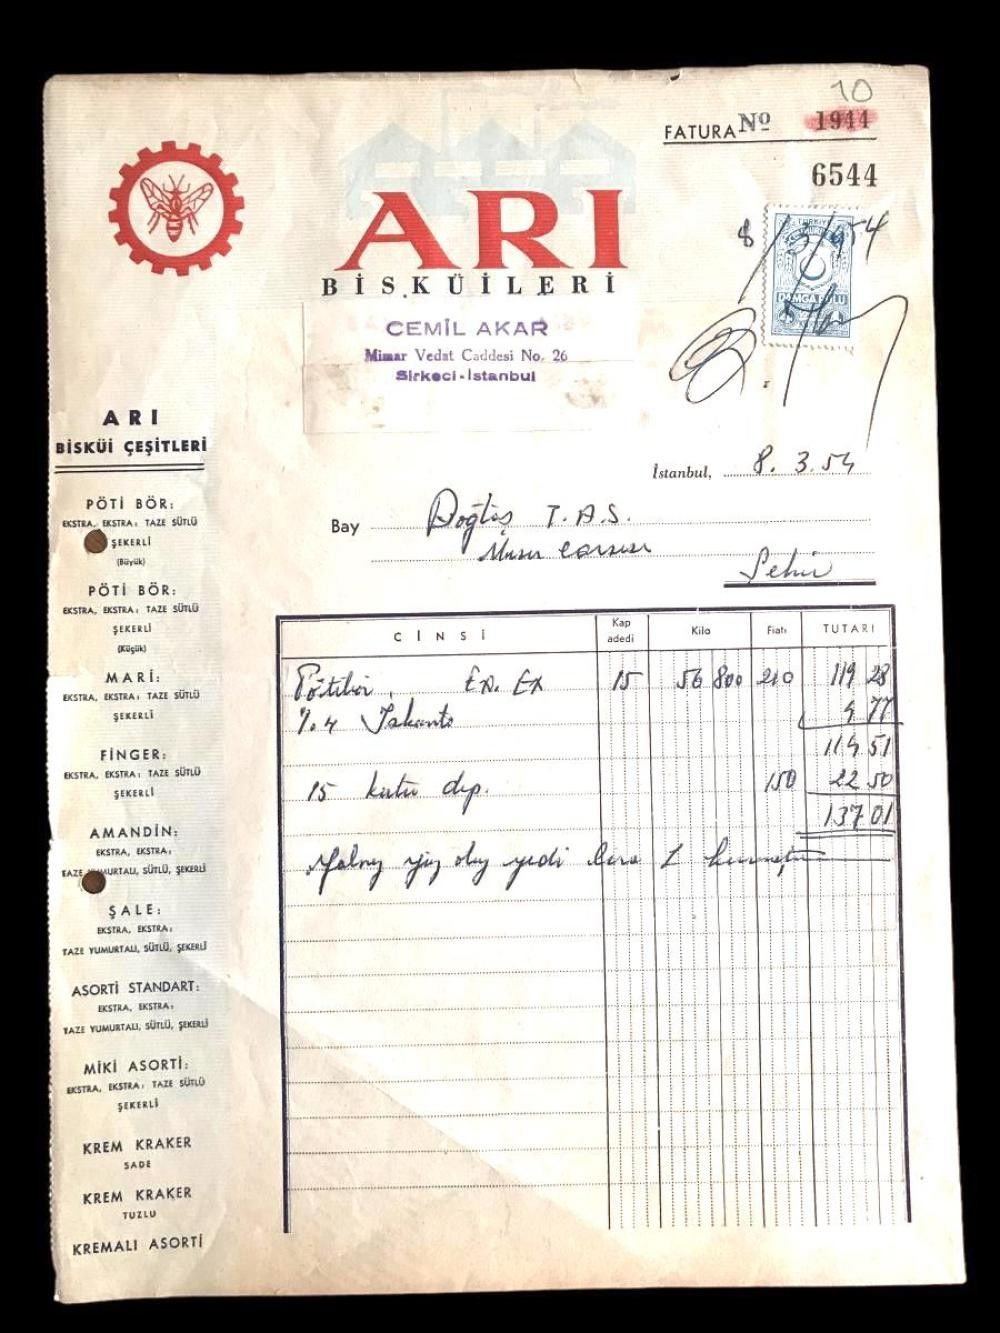 10
FATURA Nº 1944
6544
ARI
BİSKÜİLERİ
TÜRKİYE
DAMGA PULU
8/3/954
CEMİL AKAR
Mimar Vedat Caddesi No. 26
Sirkeci-İstanbul
İstanbul, 8.3.54
Bay Doğtaş T.A.S.
Mısır çarşısı
Şehir
ARI
BİSKÜİ ÇEŞİTLERİ
PÖTİ BÖR:
EKSTRA, EKSTRA: TAZE SÜTLÜ
ŞEKERLİ
(Büyük)
PÖTİ BÖR:
EKSTRA, EKSTRA: TAZE SÜTLÜ
ŞEKERLİ
(Küçük)
MARİ:
EKSTRA, EKSTRA: TAZE SÜTLÜ
ŞEKERLİ
FİNGER:
EKSTRA, EKSTRA: TAZE SÜTLÜ
ŞEKERLİ
AMANDİN:
EKSTRA, EKSTRA:
TAZE YUMURTALI, SÜTLÜ, ŞEKERLİ
ŞALE:
EKSTRA, EKSTRA:
TAZE YUMURTALI, SÜTLÜ, ŞEKERLİ
ASORTİ STANDART:
EKSTRA, EKSTRA:
TAZE YUMURTALI, SÜTLÜ, ŞEKERLİ
MİKİ ASORTİ:
EKSTRA, EKSTRA: TAZE SÜTLÜ
ŞEKERLİ
KREM KRAKER
SADE
KREM KRAKER
TUZLU
KREMALI ASORTİ
CİNSİ Kap adedi Kilo Fiatı TUTARI
Pötibör, Ex. Ex 15 56 800 210 119 28
%.4 İskonto 4 77
114 51
15 kutu dep. 150 22 50
137 01
Yalnız yüz otuz yedi lira 1 kuruştur